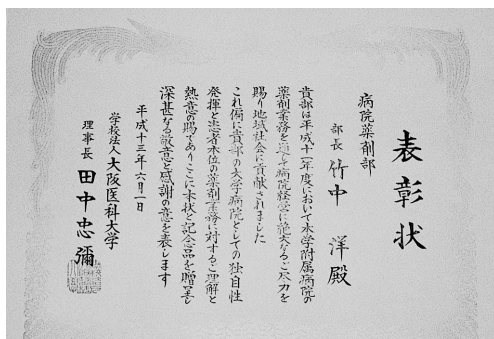 表彰状
病院薬剤部
部長 竹中 洋殿
貴部は平成十二年度において本学附属病院の
薬剤業務を通じて病院経営に絶大なるご尽力を
賜り地域社会に貢献されました
これ偏に貴部の大学病院としての独自性
発揮と患者本位の薬剤業務に対するご理解と
熱意の賜でありここに本状と記念品を贈呈し
深甚なる敬意と感謝の意を表します
平成十三年六月一日
学校法人大阪医科大学
理事長 田中忠彌